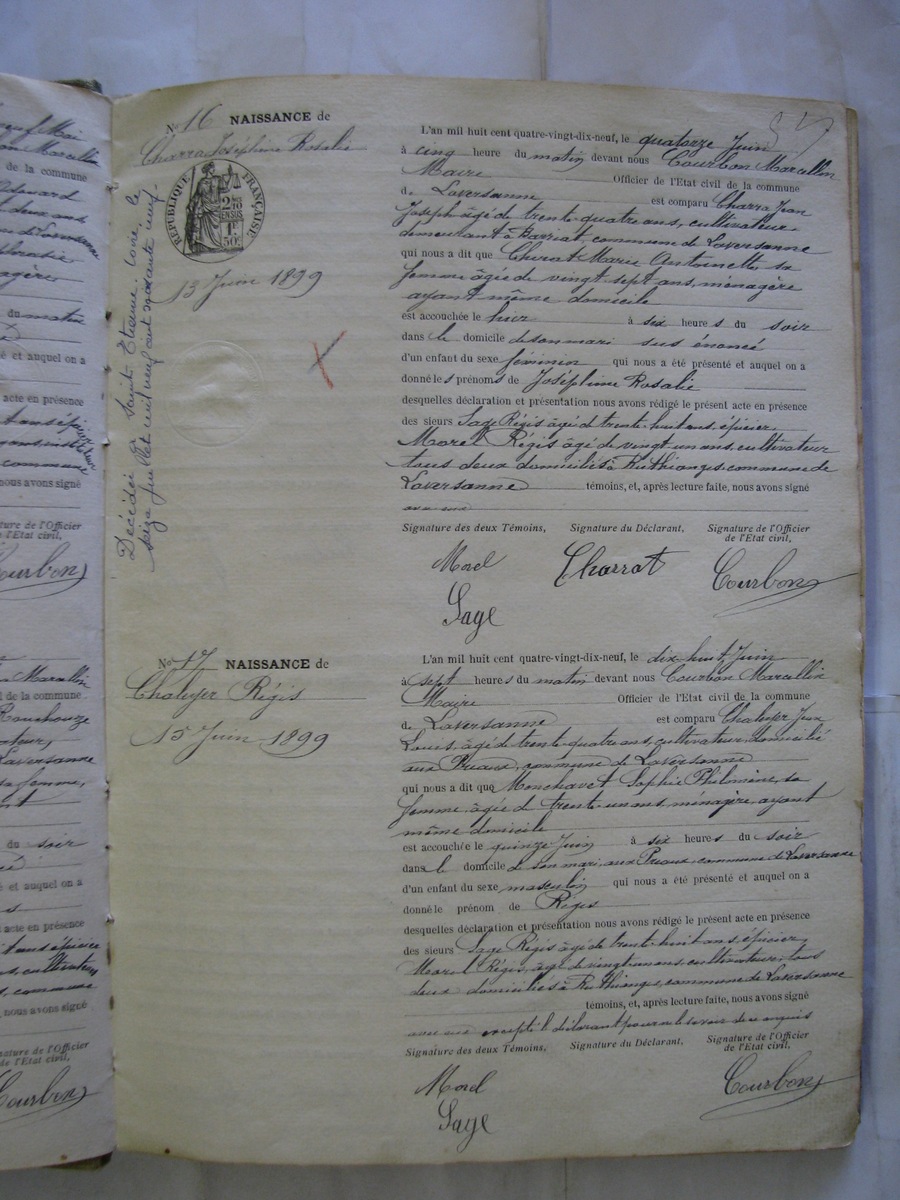 No 16 NAISSANCE de
Charra Joséphine Rosalie
RÉPUBLIQUE FRANÇAISE
2/10 EN SUS
1F 50C
13 Juin 1899
Décédée Saint Etienne. Loire. le
seize Juillet mil neuf cent soixante neuf.
L'an mil huit cent quatre-vingt-dix-neuf, le quatorze Juin
à cinq heure du matin devant nous Courbon Marcellin
Maire Officier de l'Etat civil de la commune
de Laversanne est comparu Charra Jean
Joseph âgé de trente-quatre ans, cultivateur
demeurant à Barriat, commune de Laversanne
qui nous a dit que Cherat Marie Antoinette sa
femme âgée de vingt sept ans, ménagère
ayant même domicile
est accouchée le hier à six heures du soir
dans le domicile de son mari sus énoncé
d'un enfant du sexe féminin qui nous a été présenté et auquel on a
donné les prénoms de Joséphine Rosalie
desquelles déclaration et présentation nous avons rédigé le présent acte en présence
des sieurs Sage Régis âgé de trente-huit ans, épicier,
Morel Régis âgé de vingt-un ans, cultivateur
tous deux domiciliés à Ruthianges commune de
Laversanne témoins, et, après lecture faite, nous avons signé
avec eux
Signature des deux Témoins, Signature du Déclarant, Signature de l'Officier
de l'Etat civil,
Morel Charrat Courbon
Sage
No 17 NAISSANCE de
Chaleyer Régis
15 Juin 1899
L'an mil huit cent quatre-vingt-dix-neuf, le dix-huit Juin
à sept heures du matin devant nous Courbon Marcellin
Maire Officier de l'Etat civil de la commune
de Laversanne est comparu Chaleyer Jean
Louis, âgé de trente-quatre ans, cultivateur, domicilié
aux Priaux, commune de Laversanne
qui nous a dit que Monchavet Sophie Philomène, sa
femme, âgée de trente-un ans, ménagère, ayant
même domicile
est accouchée le quinze Juin à six heures du soir
dans le domicile de son mari, aux Priaux, commune de Laversanne
d'un enfant du sexe masculin qui nous a été présenté et auquel on a
donné le prénom de Régis
desquelles déclaration et présentation nous avons rédigé le présent acte en présence
des sieurs Sage Régis âgé de trente-huit ans, épicier,
Morel Régis, âgé de vingt-un ans, cultivateur, tous
deux domiciliés à Ruthianges, commune de Laversanne
témoins, et, après lecture faite, nous avons signé
avec eux excepté le déclarant pour ne le savoir de ce enquis
Signature des deux Témoins, Signature du Déclarant, Signature de l'Officier
de l'Etat civil,
Morel Courbon
Sage